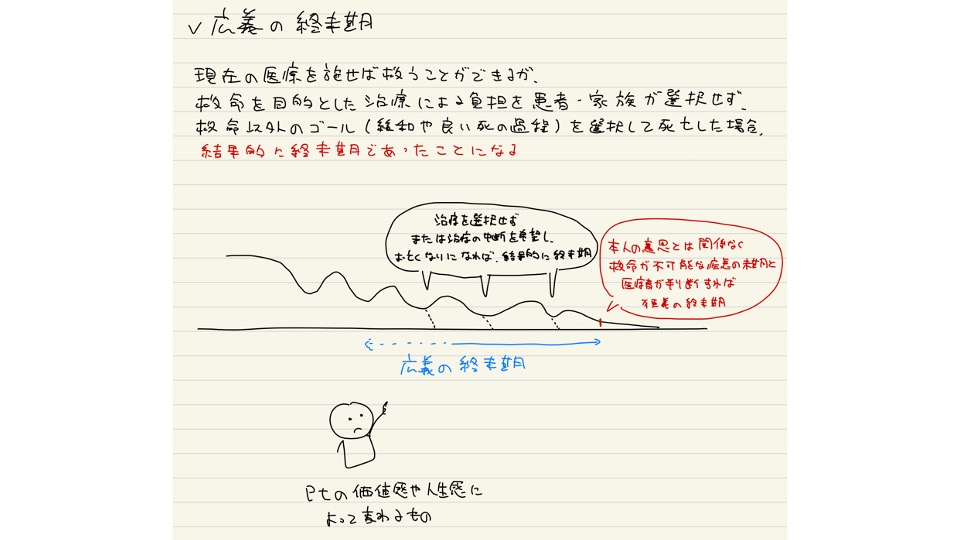 ✓ 広義の終末期
現在の医療を施せば救うことができるが、
救命を目的とした治療による負担を患者・家族が選択せず、
救命以外のゴール（緩和や良い死の過程）を選択して死亡した場合、
結果的に終末期であったことになる
治療を選択せず
または治療の中断を希望し、
お亡くなりになれば、結果的に終末期
本人の意思とは関係なく
救命が不可能な疾患の末期と
医療者が判断すれば
狭義の終末期
広義の終末期
Ptの価値感や人生感に
よって変わるもの